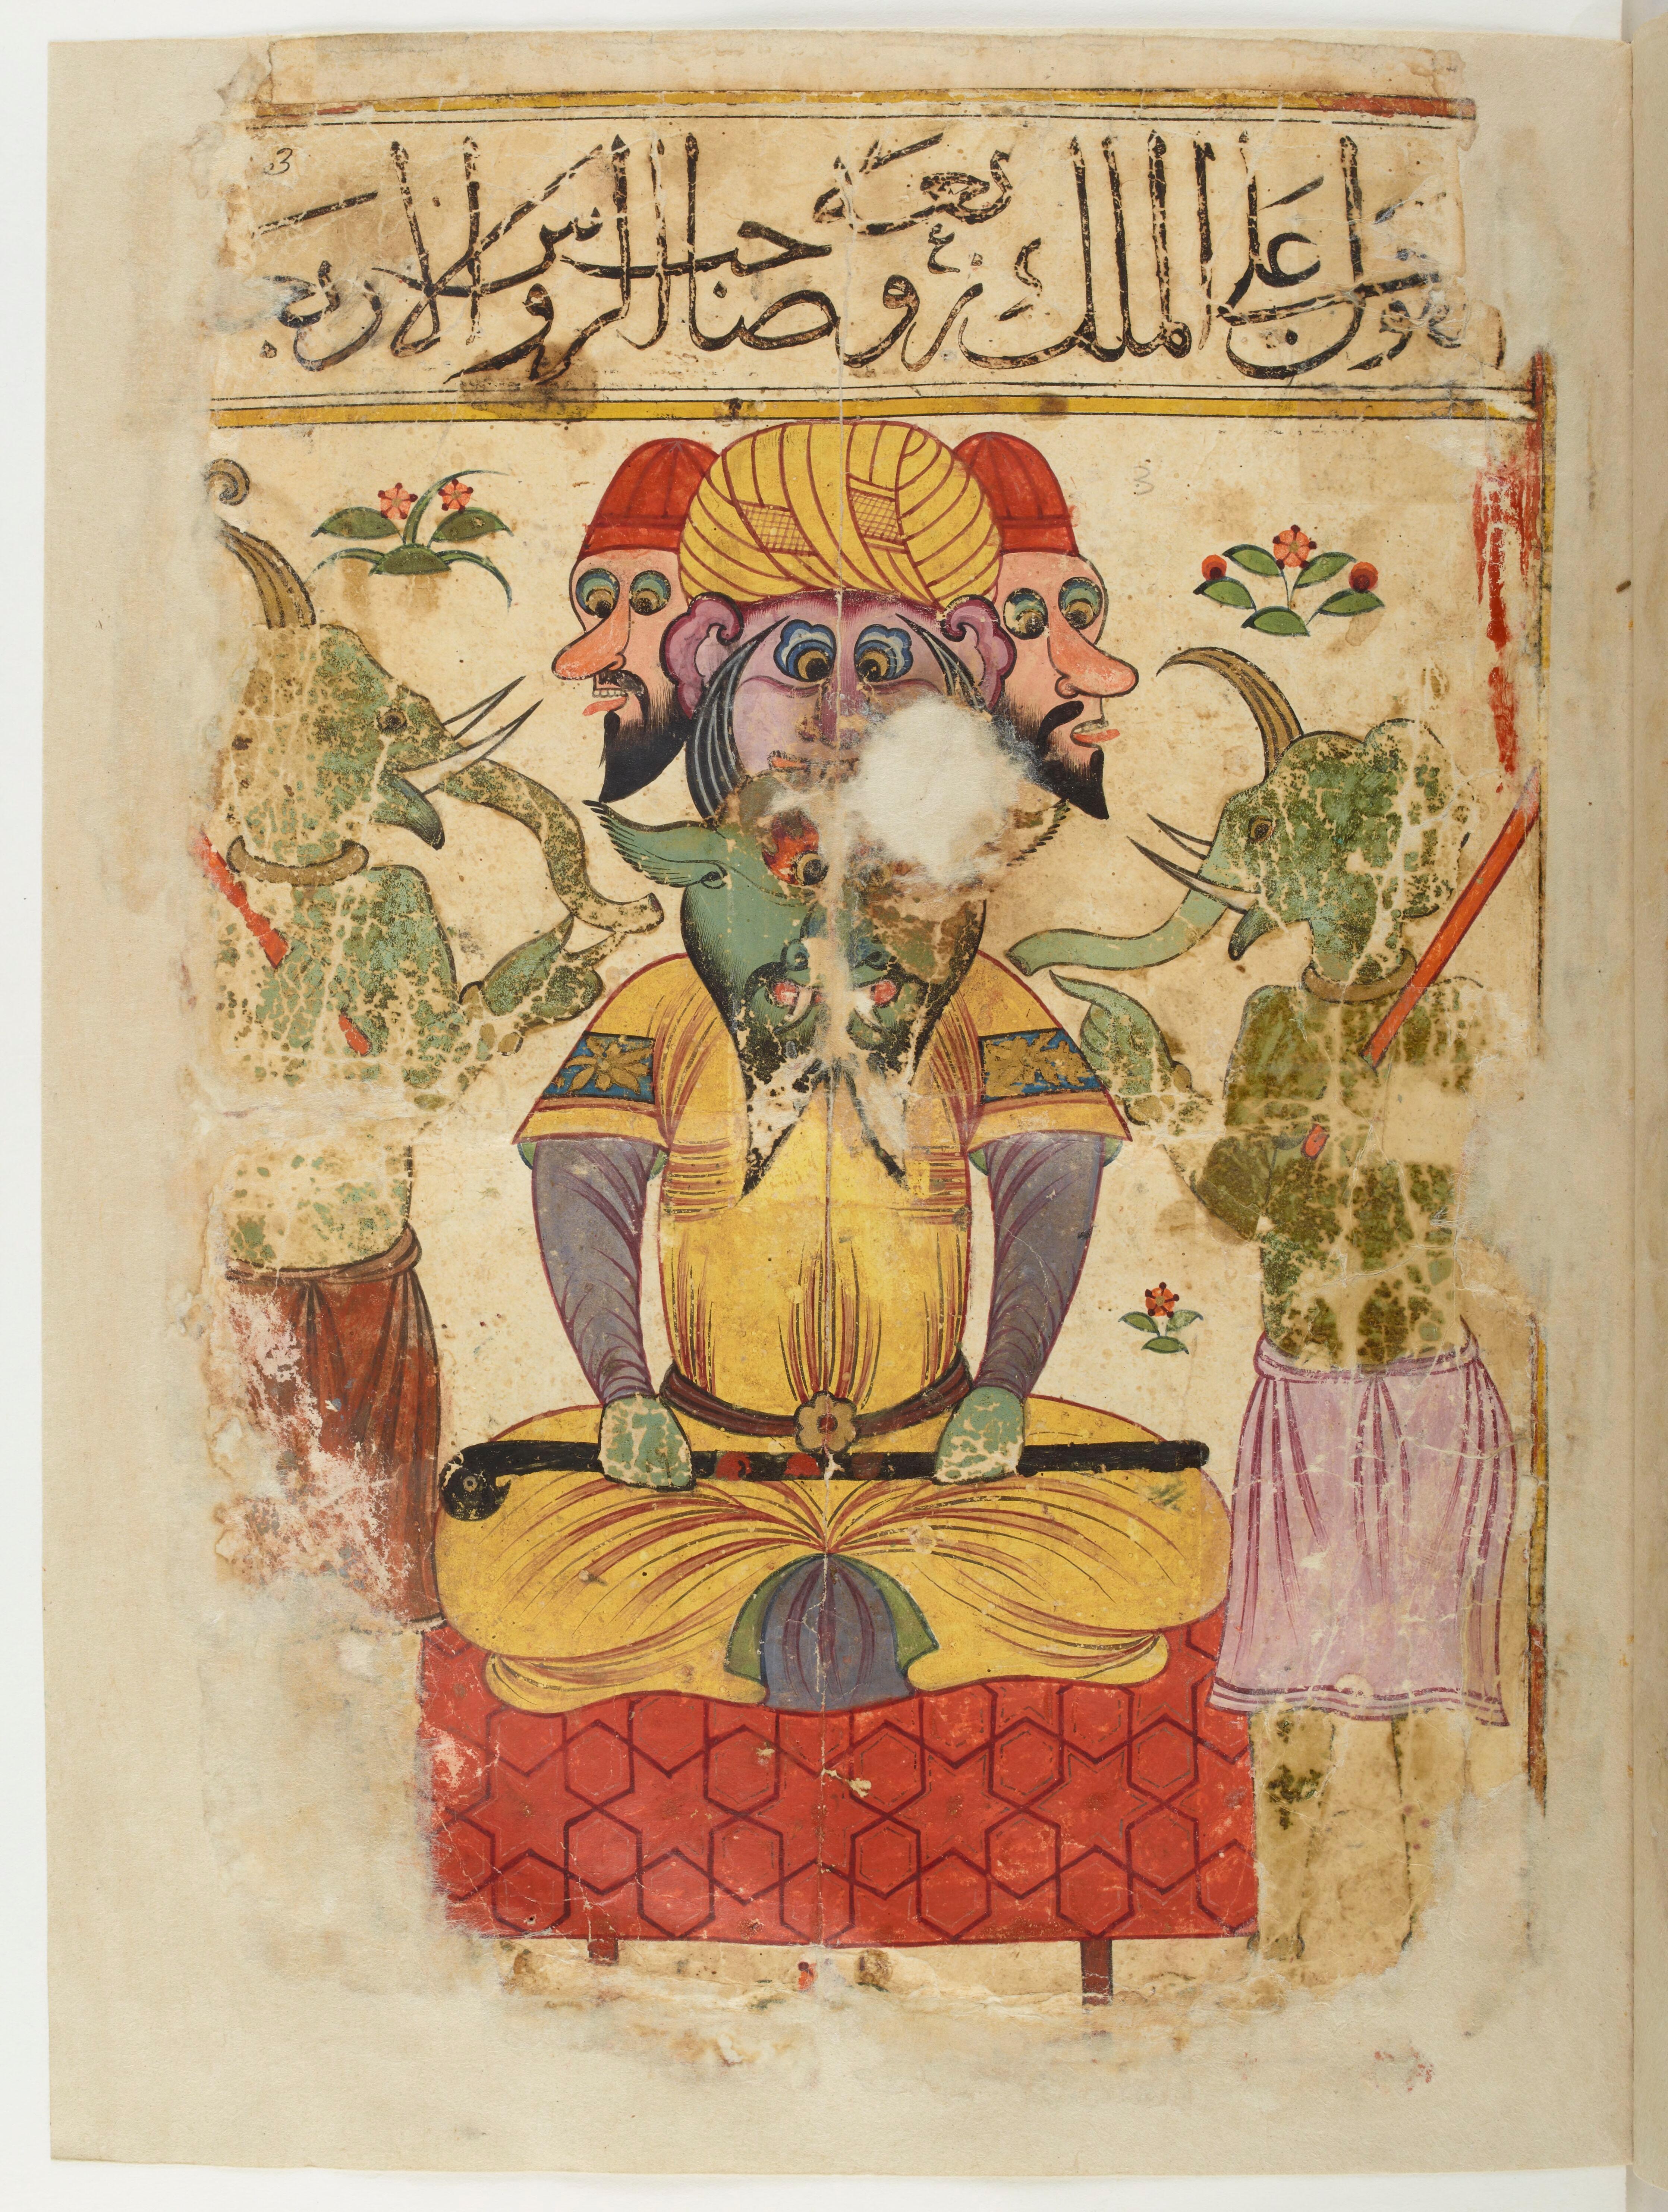 3
على الملك زوبعه صاحب الروس الاربع
3